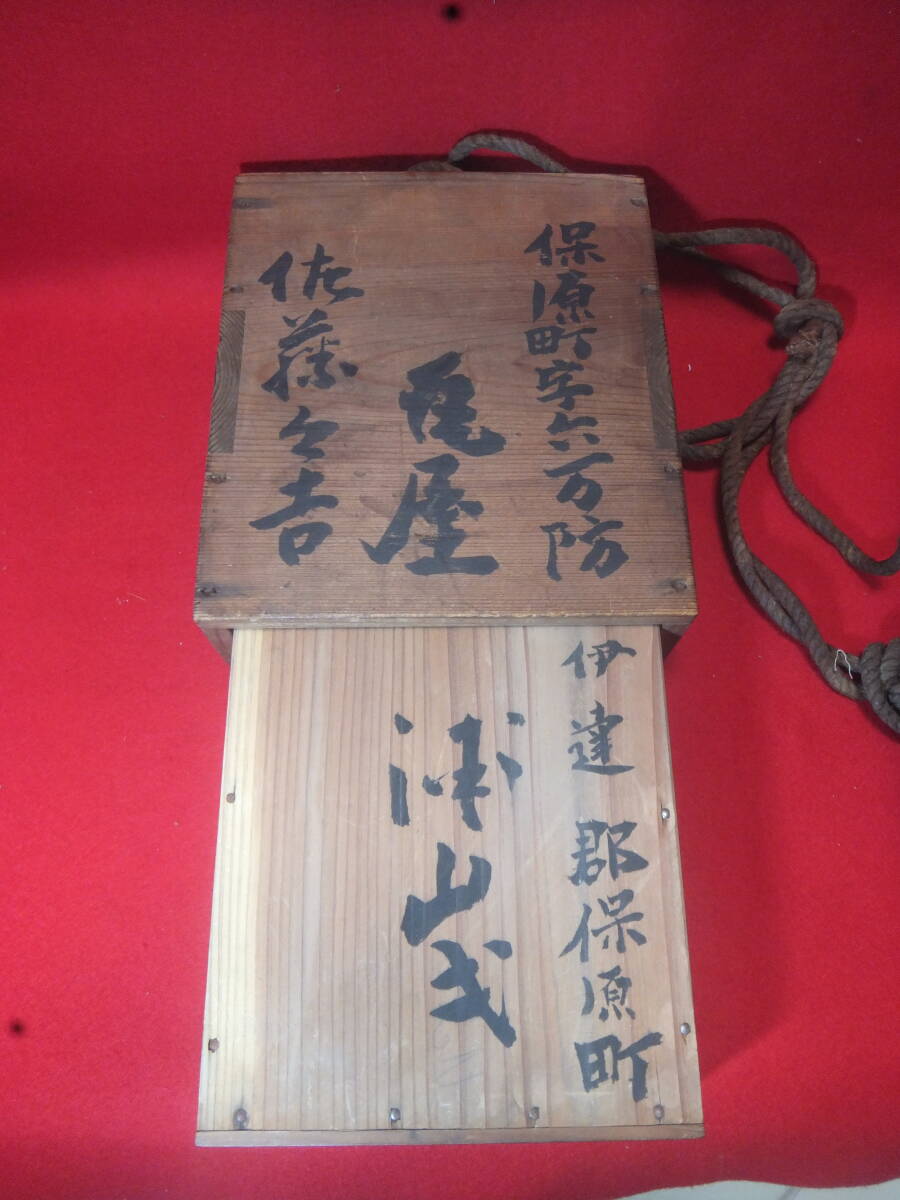 保原町字六万防
亀屋
佐藤今吉
伊達郡保原町
山